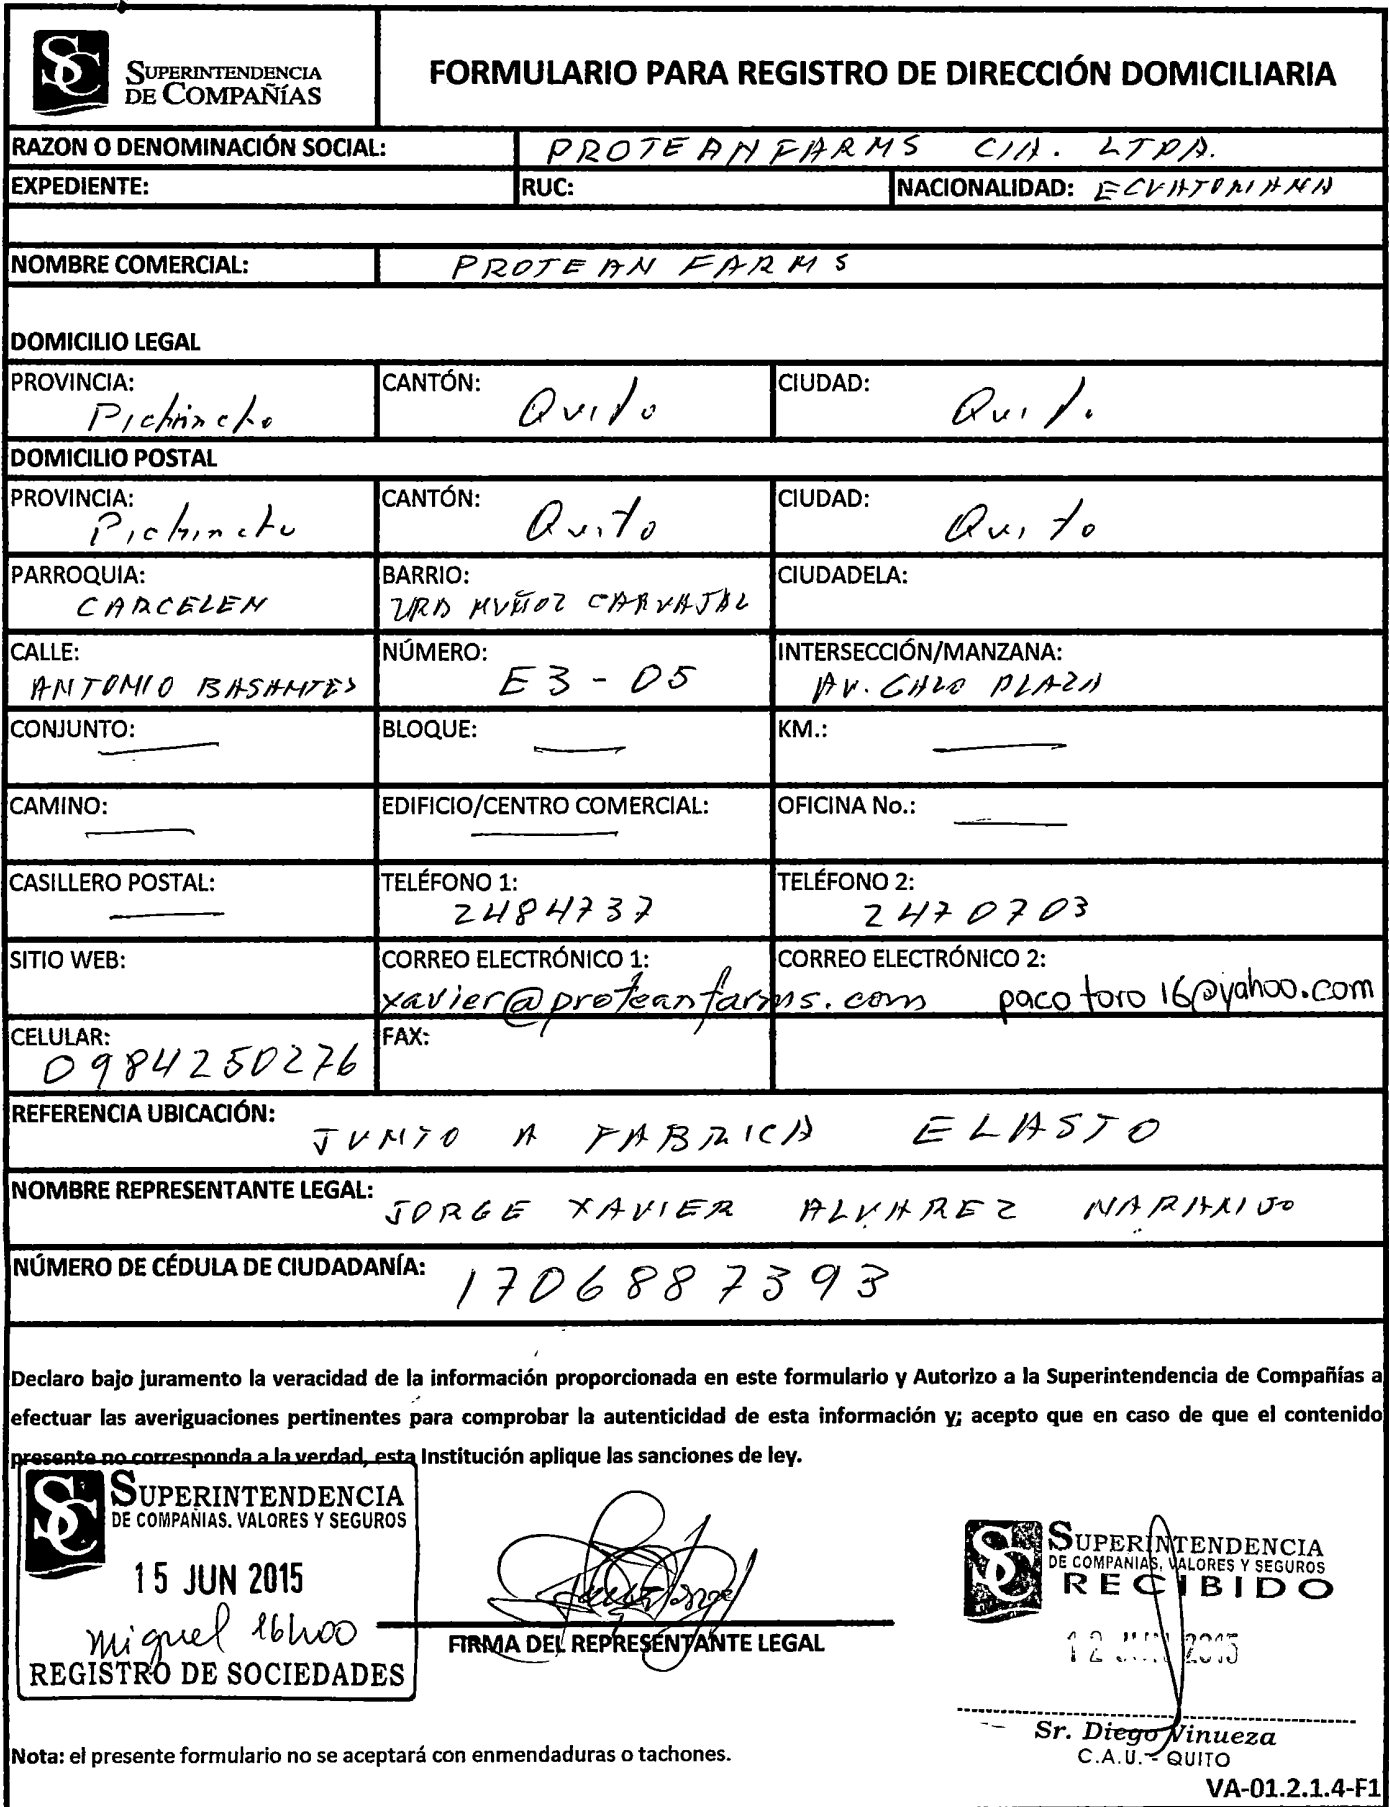 SUPERINTENDENCIA
DE COMPAÑÍAS
FORMULARIO PARA REGISTRO DE DIRECCIÓN DOMICILIARIA
RAZON O DENOMINACIÓN SOCIAL: PROTEANFARMS CIA. LTDA.
EXPEDIENTE: RUC: NACIONALIDAD: ECUATORIANA
NOMBRE COMERCIAL: PROTEAN FARMS
DOMICILIO LEGAL
PROVINCIA: Pichincha CANTÓN: Quito CIUDAD: Quito
DOMICILIO POSTAL
PROVINCIA: Pichincha CANTÓN: Quito CIUDAD: Quito
PARROQUIA: CARCELEN BARRIO: URB MUÑOZ CARVAJAL CIUDADELA:
CALLE: ANTONIO BASANTES NÚMERO: E3-05 INTERSECCIÓN/MANZANA: AV. GALO PLAZA
CONJUNTO: BLOQUE: KM.:
CAMINO: EDIFICIO/CENTRO COMERCIAL: OFICINA No.:
CASILLERO POSTAL: TELÉFONO 1: 2484737 TELÉFONO 2: 2470703
SITIO WEB: CORREO ELECTRÓNICO 1: xavier@proteanfarms.com CORREO ELECTRÓNICO 2: pacotoro16@yahoo.com
CELULAR: 0984250276 FAX:
REFERENCIA UBICACIÓN: JUNTO A FABRICA ELASTO
NOMBRE REPRESENTANTE LEGAL: JORGE XAVIER ALVAREZ NARANJO
NÚMERO DE CÉDULA DE CIUDADANÍA: 1706887393
Declaro bajo juramento la veracidad de la información proporcionada en este formulario y Autorizo a la Superintendencia de Compañías a
efectuar las averiguaciones pertinentes para comprobar la autenticidad de esta información y; acepto que en caso de que el contenido
presente no corresponda a la verdad, esta Institución aplique las sanciones de ley.
SUPERINTENDENCIA
DE COMPAÑIAS. VALORES Y SEGUROS
15 JUN 2015
Miguel 16h00
REGISTRO DE SOCIEDADES
FIRMA DEL REPRESENTANTE LEGAL
SUPERINTENDENCIA
DE COMPANIAS, VALORES Y SEGUROS
RECIBIDO
12 JUN 2015
Sr. Diego Vinueza
C.A.U. - QUITO
Nota: el presente formulario no se aceptará con enmendaduras o tachones.
VA-01.2.1.4-F1